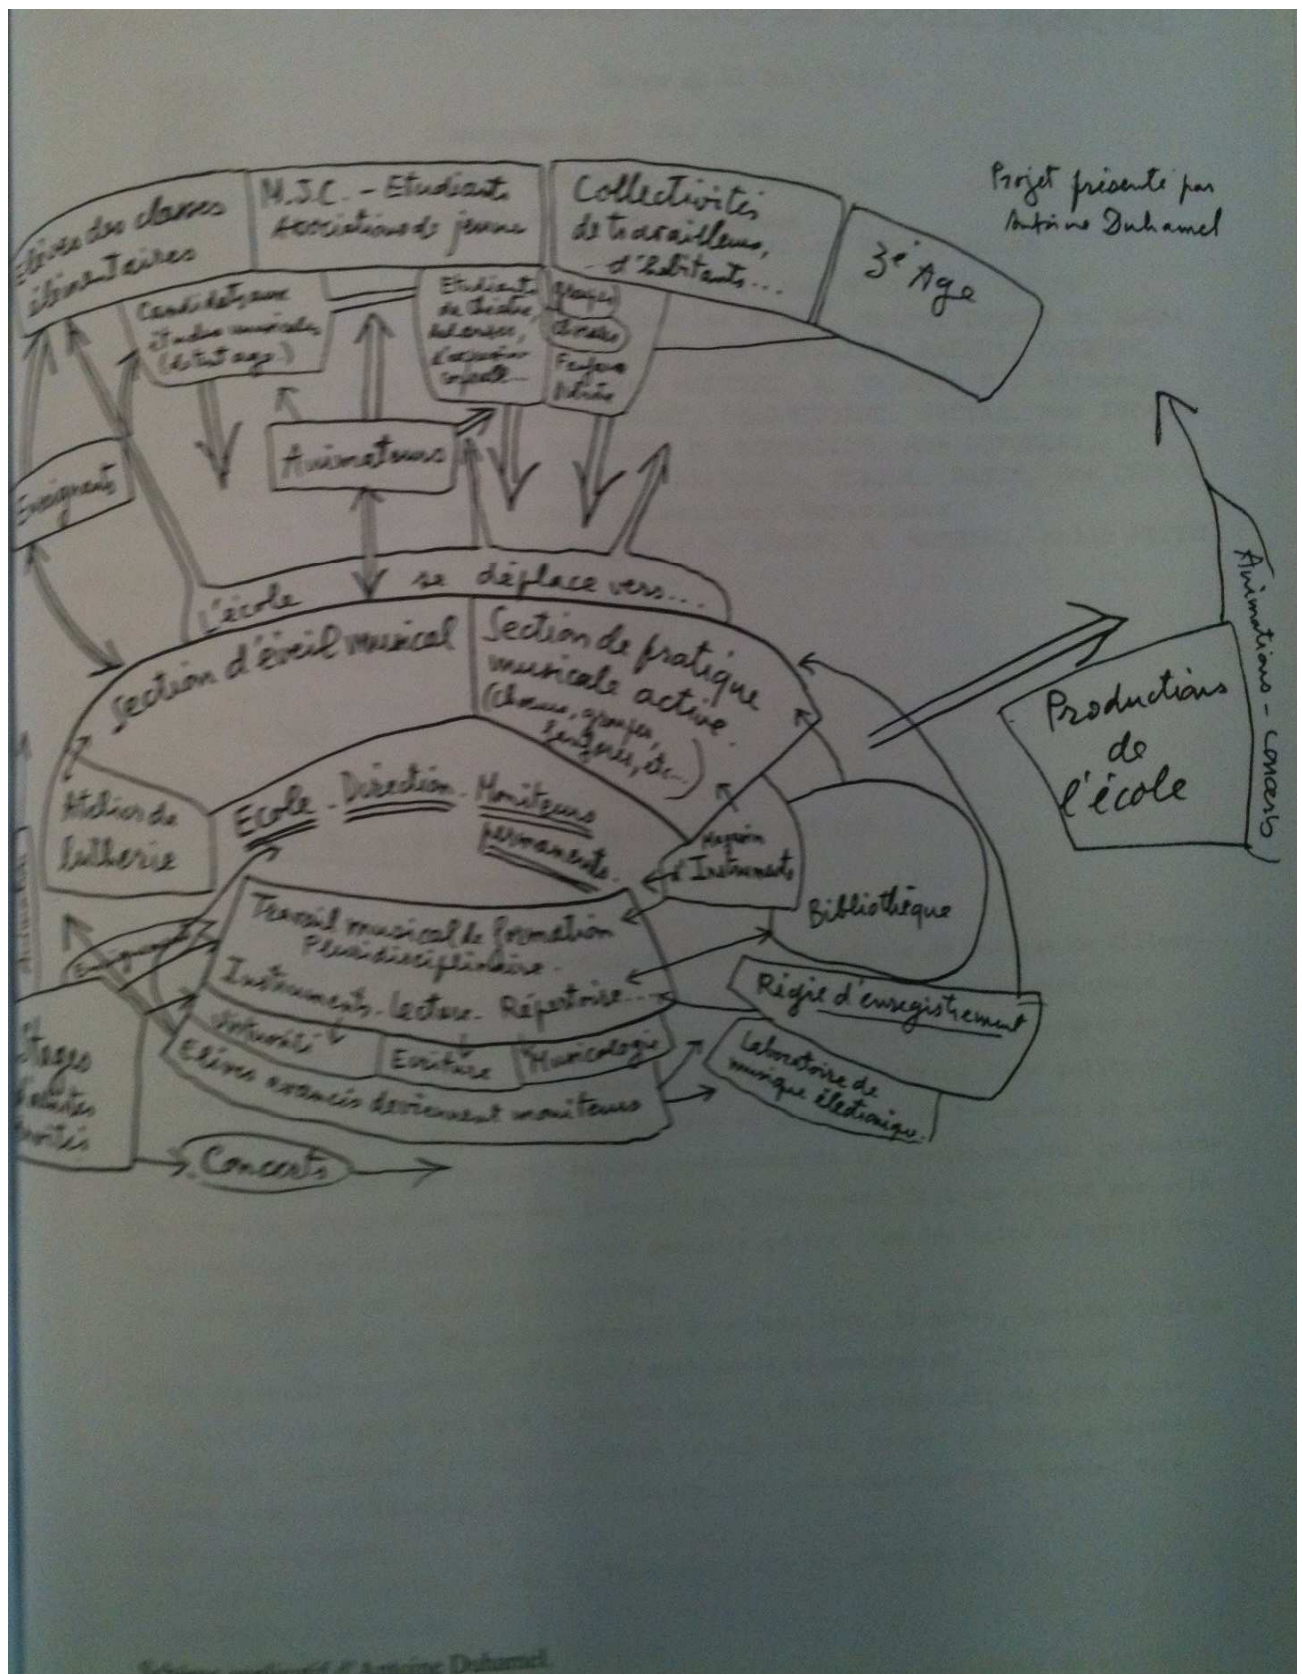 Projet présenté par
Antoine Duhamel
Elèves des classes
élémentaires
M.J.C. - Etudiants
Associations de jeunes
Collectivités
de travailleurs,
d'habitants...
3e Age
Candidats aux
études musicales
(de tout age)
Etudiants
de théatre,
de danse,
d'expression
corporelle...
groupes
chorales
Fanfares
Enseignants
Animateurs
L'école se déplace vers...
Section d'éveil musical
Section de pratique
musicale active.
(Choeurs, groupes,
fanfares, etc...)
Ateliers de
lutherie
Ecole - Direction - Moniteurs
permanents.
Magasin
d'Instruments
Bibliothèque
Productions
de
l'école
Animations - concerts
Travail musical de formation
Pluridisciplinaire.
Instruments - Lecture - Répertoire...
Virtuosité
Ecriture
Musicologie
Elèves avancés deviennent moniteurs
Régie d'enregistrement
Laboratoire de
musique électronique.
Stages
d'artistes
invités
Concerts
d'Antoine Duhamel.